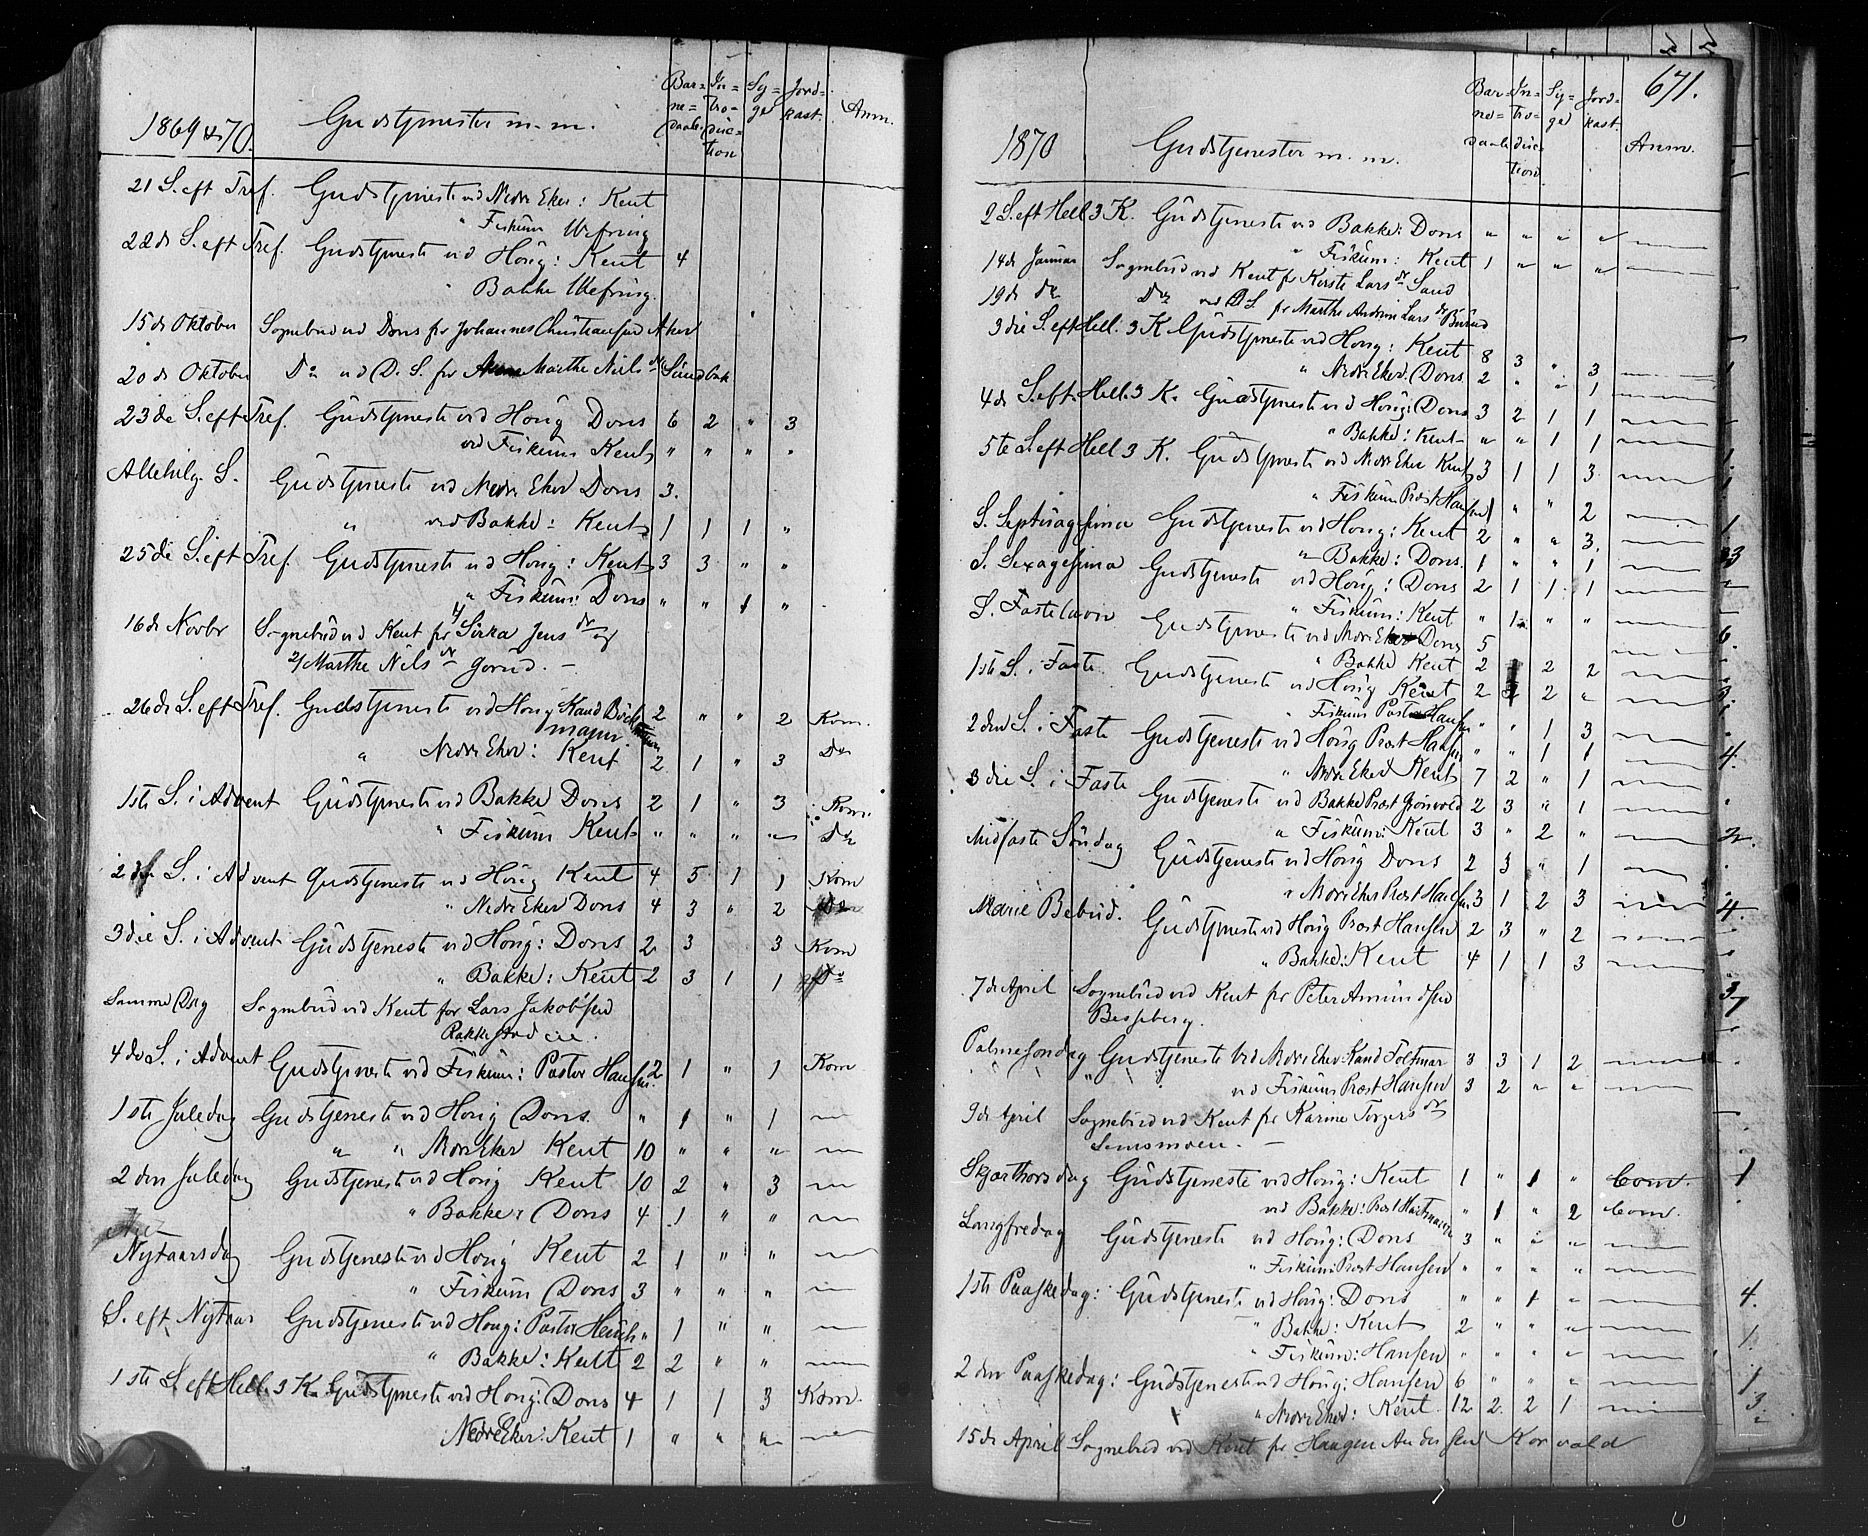 1869 & 70. Gudstjenester m. m. Bar= ne= daab. In= tro= duc= tion Sy= ge Jord= kast. Anm.
21 S. eft Tref. Gudstjeneste ved Nedre Eker: Kent
" Fiskum Wefring
22de S. eft Tref. Gudstjeneste ved Houg: Kent 4
" Bakke Wefring.
15de Oktober Sognebud ved Dons for Johannes Christiansen Aker
20de Oktober Do ved D. S. for Marthe Nilsdr Sundbak
23de S. eft Tref. Gudstjeneste ved Houg Dons 6 2 " 3
ved Fiskum Kent " " " "
Allehelg. S. Gudstjeneste ved Nedre Eker Dons 3.
" ved Bakke: Kent 1 1 1 "
25de S. eft Tref. Gudstjeneste ved Houg: Kent 3 3 " "
" Fiskum: Dons " " 1 "
16de Novbr Sognebud ved Kent for 1/ Sirka Jensdr og
2/ Marthe Nilsdr Gorud. —
26de S. eft Tref. Gudstjeneste ved Houg Kand 2 " " 2 Kom.
" Nedre Eker: Kent 2 1 " 3 Do
1ste S. i Advent Gudstjeneste ved Bakke Dons 2 1 " 3 Kom
" Fiskum Kent " " " " Do
2den S. i Advent Gudstjeneste ved Houg Kent 4 5 1 1 Kom
" Nedre Eker Dons 4 3 " 2 Do
3die S. i Advent Gudstjeneste ved Houg: Dons 2 3 3 Kom
" Bakke: Kent 2 3 1 1 Do
Samme Dag Sognebud ved Kent for Lars Jakobsen
Rakkestad eie.
4de S. i Advent Gudstjeneste ved Fiskum: Pastor Hansen. 2 1 " 1 Kom
1ste Juledag Gudstjeneste ved Houg Dons. " 1 " 1 —
" " Nedre Eker Kent 10 " " " —
2den Juledag Gudstjeneste ved Houg Kent 10 2 " 3 —
" Bakke: Dons 4 1 " " —
Nytaarsdag Gudstjeneste ved Houg Kent 2 1 " " —
" Fiskum Dons 3 " " " —
S. eft Nytaar Gudstjeneste ved Houg: Pastor " 1 " " —
" Bakke: Kent 2 2 " " —
1ste S. eft Hell. 3 K. Gudstjeneste ved Houg: Dons 4 1 1 3 Kom.
Nedre Eker: Kent 1 " " " —
671.
1870 Gudstjenester m. m. Bar= ne= daab In= tro= duc= tion Sy= ge Jord= kast. Anm.
2 S. eft Hell 3 K. Gudstjeneste ved Bakke: Dons " " " " —
" Fiskum: Kent 1 " " " —
14de Januar Sognebud ved Kent for Kirste Larsdr Sand
19de do Do ved D. S. for Marthe Andrine Larsdr Burud
3die S. eft Hell. 3 K Gudstjeneste ved Houg: Kent 8 3 " 3 —
" Nedre Eker: Dons 2 " " 1 —
4de S. eft Hell. 3 K. Gudstjeneste ved Houg: Dons 3 2 1 1 —
" Bakke: Kent " " 1 1 —
5te S. eft Hell 3 K. Gudstjeneste ved Nedre Eker Kent 3 1 1 3. —
" Fiskum Præst Hansen 1 " " 2 —
S. Septuagesima Gudstjeneste ved Houg: Kent 2 " " 3. —
" Bakke: Dons. 1 " " 1 —
S. Sexagesima Gudstjeneste ved Houg: Dons 2 1 1 1 —
" Fiskum: Kent " 1 " " —
S. Fastelavn Gudstjeneste ved Nedre Eker Dons 5 —
" Bakke Kent 2 1 2 2 —
1ste S. i Faste Gudstjeneste ved Houg Kent 2 2 " —
" Fiskum Pastor Hansen " " 1 3 —
2den S. i Faste Gudstjeneste ved Houg Præst Hansen " " 1 1 —
" Nedre Eker Kent 7 2 " 1 —
3die S. i Faste Gudstjeneste ved Bakke Præst Grönvold 2 3 " 1 —
" Fiskum: Kent 3 " 2 " —
Midfaste Söndag Gudstjeneste ved Houg Dons 2 3 " 1 —
" Nedre Eker Præst Hansen. 3 1 2 3 —
Mariæ Bebud. Gudstjeneste ved Houg Præst Hansen 2 3 " 2 —
" Bakke: Kent 4 1 1 3 —
7de April Sognebud ved Kent for Peter Amundsen
Besseberg.
Palmesondag Gudstjeneste ved Nedre Eker: Kand Foltmar 3 3 1 2 —
" ved Fiskum Præst Hansen 3 2 " " —
9de April Sognebud ved Kent for Karine Torgersdr
Semsmoen. —
Skjærthorsdag Gudstjeneste ved Houg: Kent 1 " 1 " Com.
ved Bakke: Præst Hartmann " 1 " 2 Com.
Langfredag Gudstjeneste ved Houg: Dons 3 " " " —
" Fiskum: Præst Hansen " " " " —
1ste Paaskedag: Gudstjeneste ved Houg: Dons " " 1 " —
" Bakke: Kent 2 " " " —
" Fiskum: Hansen " " " " —
2den Paaskedag: Gudstjeneste ved Houg: Hansen 6 " " " —
" Nedre Eker: Kent. 12 2 2 1 —
15de April Sognebud ved Kent for Haagen Andersen Korvald